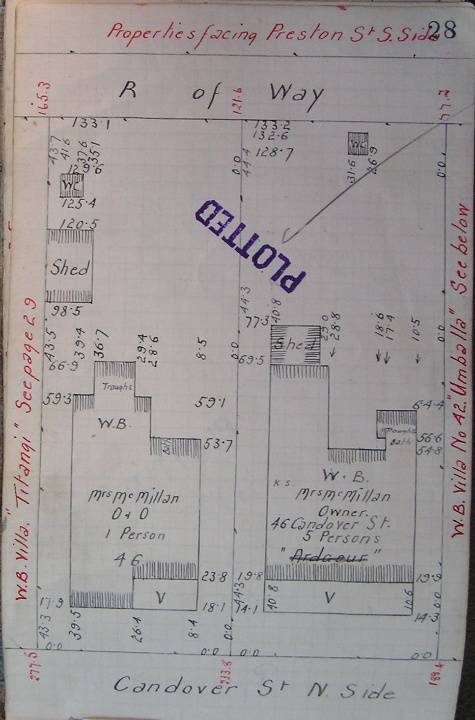 Properties facing Preston St S. Side
28
165.3
121.6
77.2
R of Way
133.1
133.2
132.6
128.7
43.7
41.6
37.6
35.1
129.6
WC
125.4
0.0
44.4
31.6
26.9
0.0
120.5
Shed
98.5
PLOTTED
44.3
77.3
40.8
Shed
29.0
28.8
18.6
17.4
10.5
43.5
39.4
36.7
29.4
28.6
8.5
0.0
69.5
66.9
Troughs
59.3
59.1
64.4
W.B.
53.7
Troughs
Bath
56.6
54.8
W.B. Villa. "Titangi" See page 29
W.B. Villa No 42. "Umballa" See below
Mrs McMillan
O & O
1 Person
46
K.S.
W.B.
Mrs McMillan
Owner.
46 Candover St.
5 Persons
"Ardaeur"
23.8
19.8
19.9
17.9
V
18.1
14.3
14.1
40.8
V
10.6
14.3
43.3
39.5
26.4
8.4
0.0
0.0
0.0
0.0
0.0
277.5
233.8
189.4
Candover St N. Side